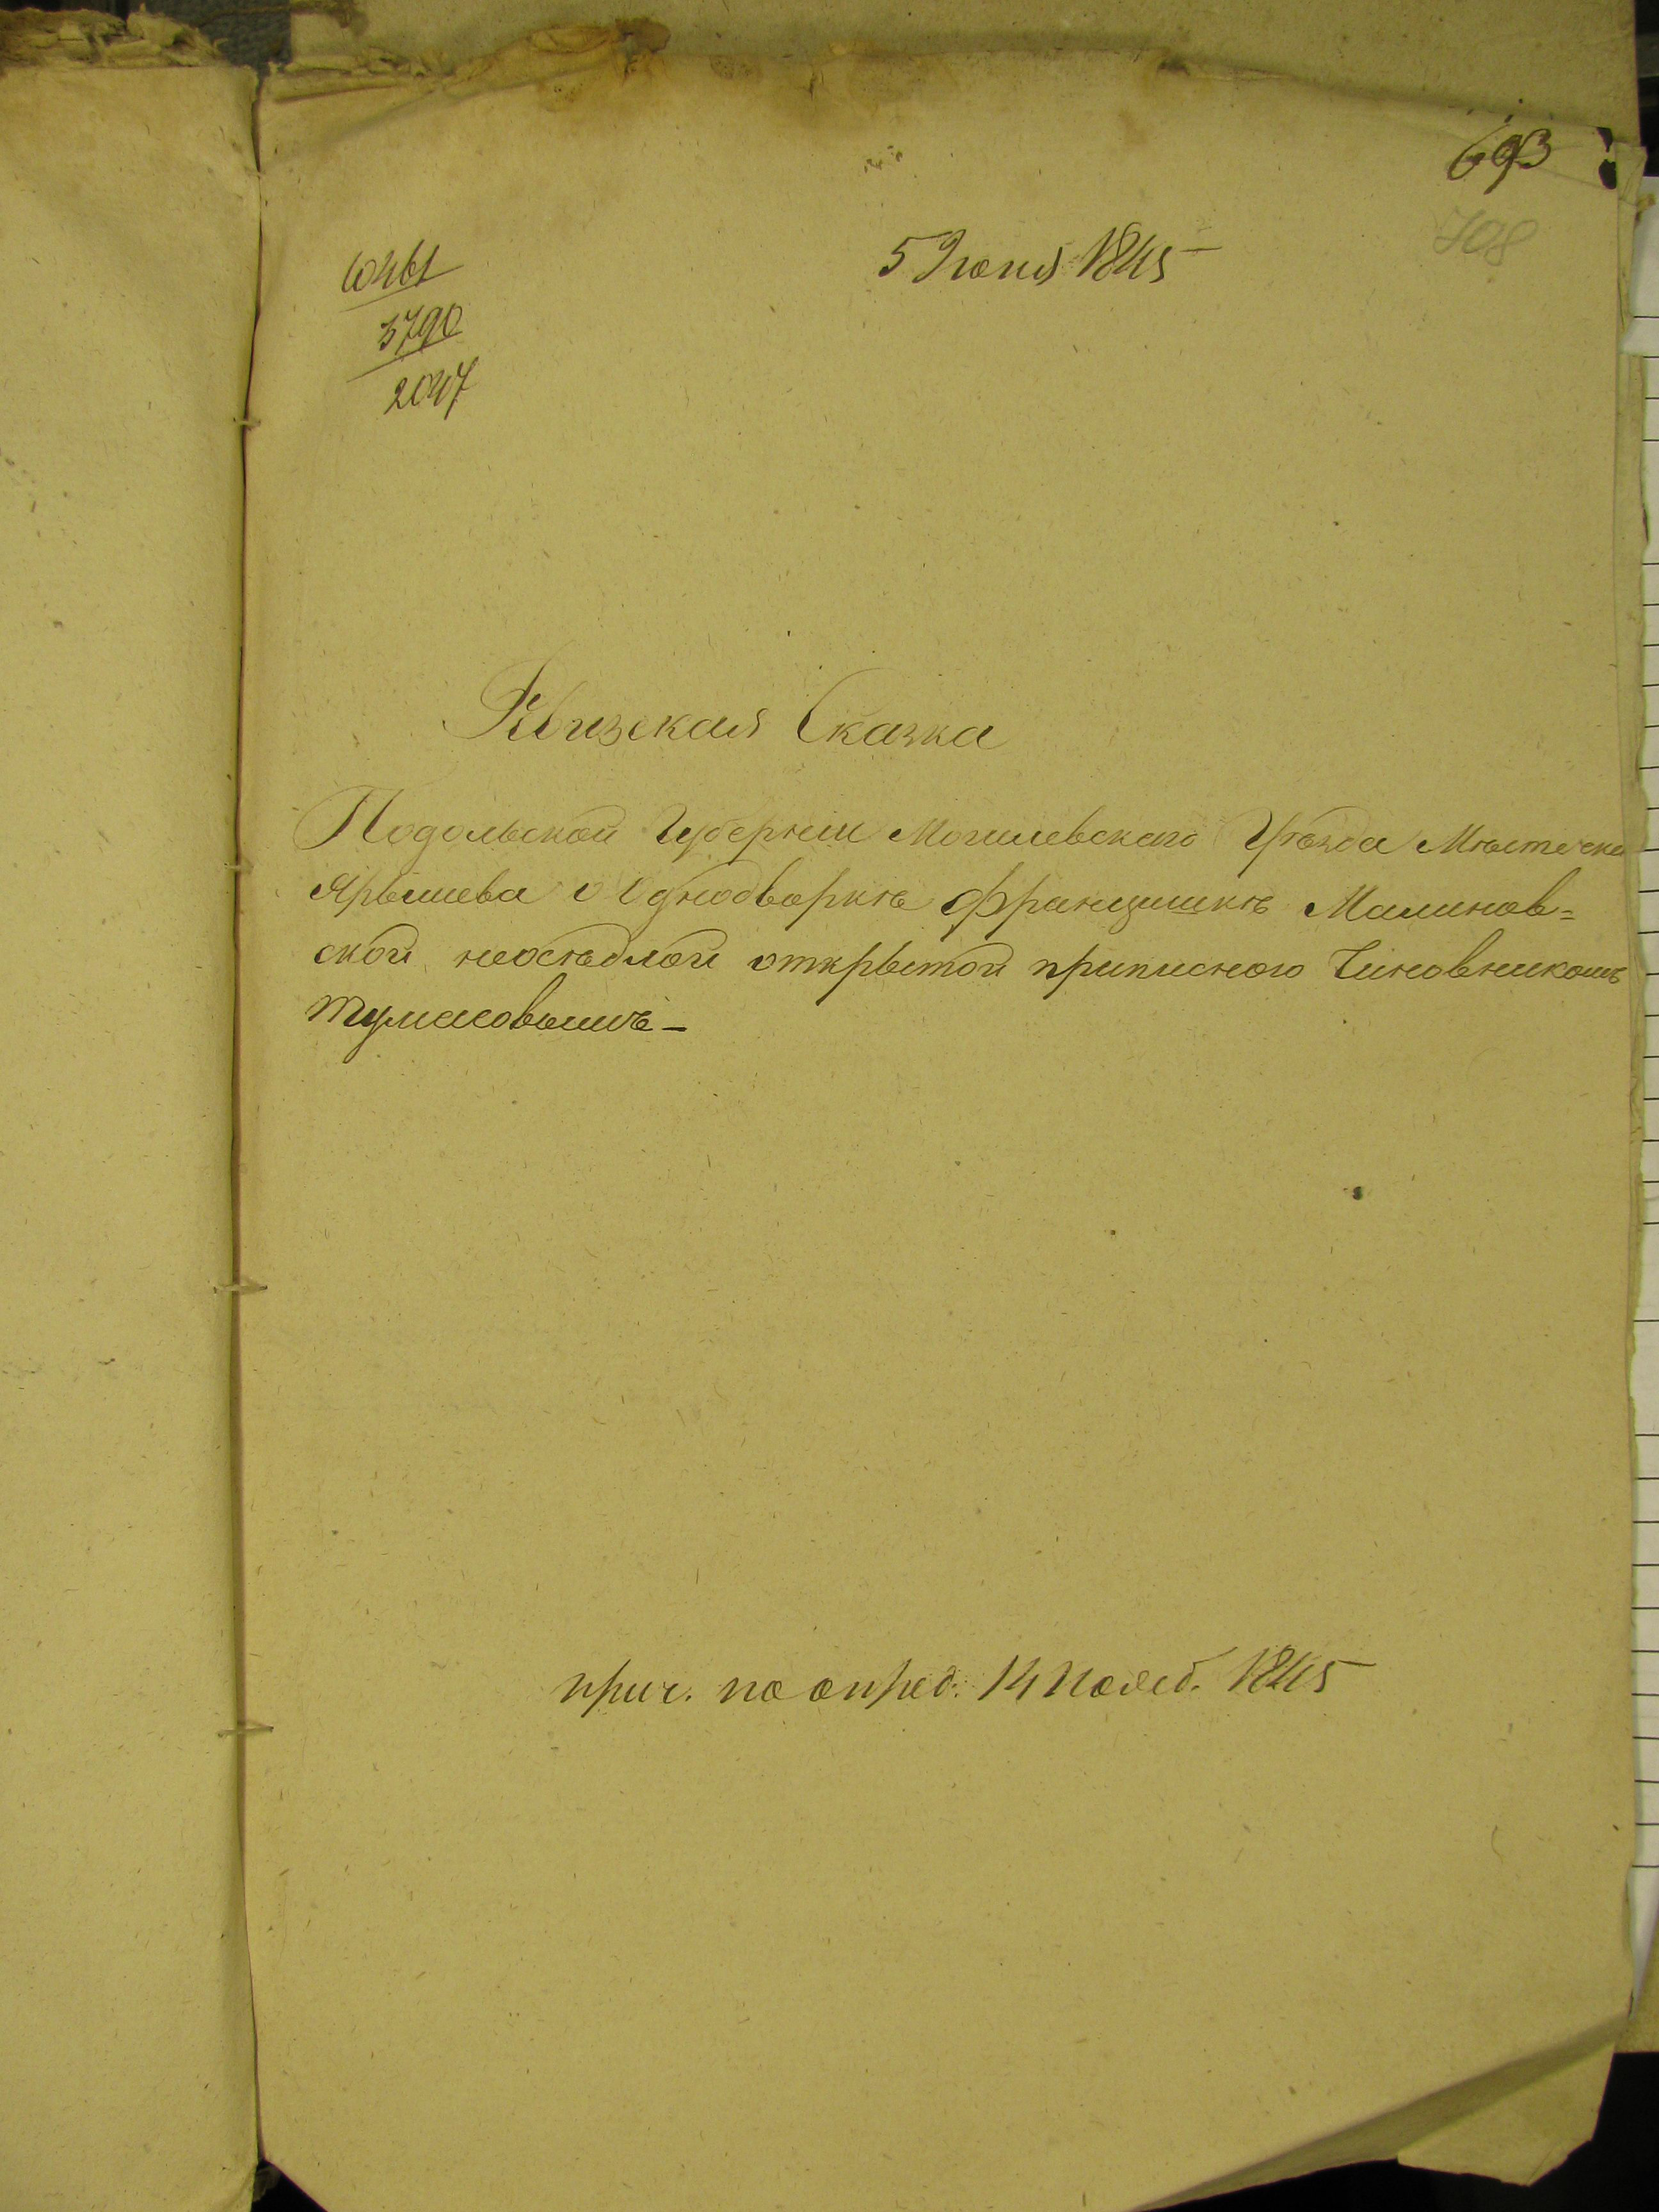 693
708
5 Июня 1845
10461
3790
2047
Ревизская Сказка
Подольской Губернии Могилевскаго Уѣзда Мѣстечка
Ярышева о Однодворкѣ Францишкѣ Малинов=
ской неосѣдлой открытой приписного Чиновникомъ
Тумасовымъ –
прич. по опред. 14 Нояб. 1845